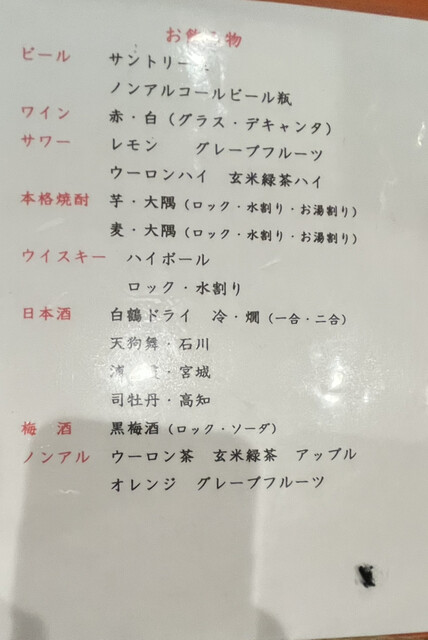 お飲み物
ビール サントリー
ノンアルコールビール瓶
ワイン 赤・白(グラス・デキャンタ)
サワー レモン グレープフルーツ
ウーロンハイ 玄米緑茶ハイ
本格焼酎 芋・大隅(ロック・水割り・お湯割り)
麦・大隅(ロック・水割り・お湯割り)
ウイスキー ハイボール
ロック・水割り
日本酒 白鶴ドライ 冷・燗(一合・二合)
天狗舞・石川
浦 ・宮城
司牡丹・高知
梅 酒 黒梅酒(ロック・ソーダ)
ノンアル ウーロン茶 玄米緑茶 アップル
オレンジ グレープフルーツ